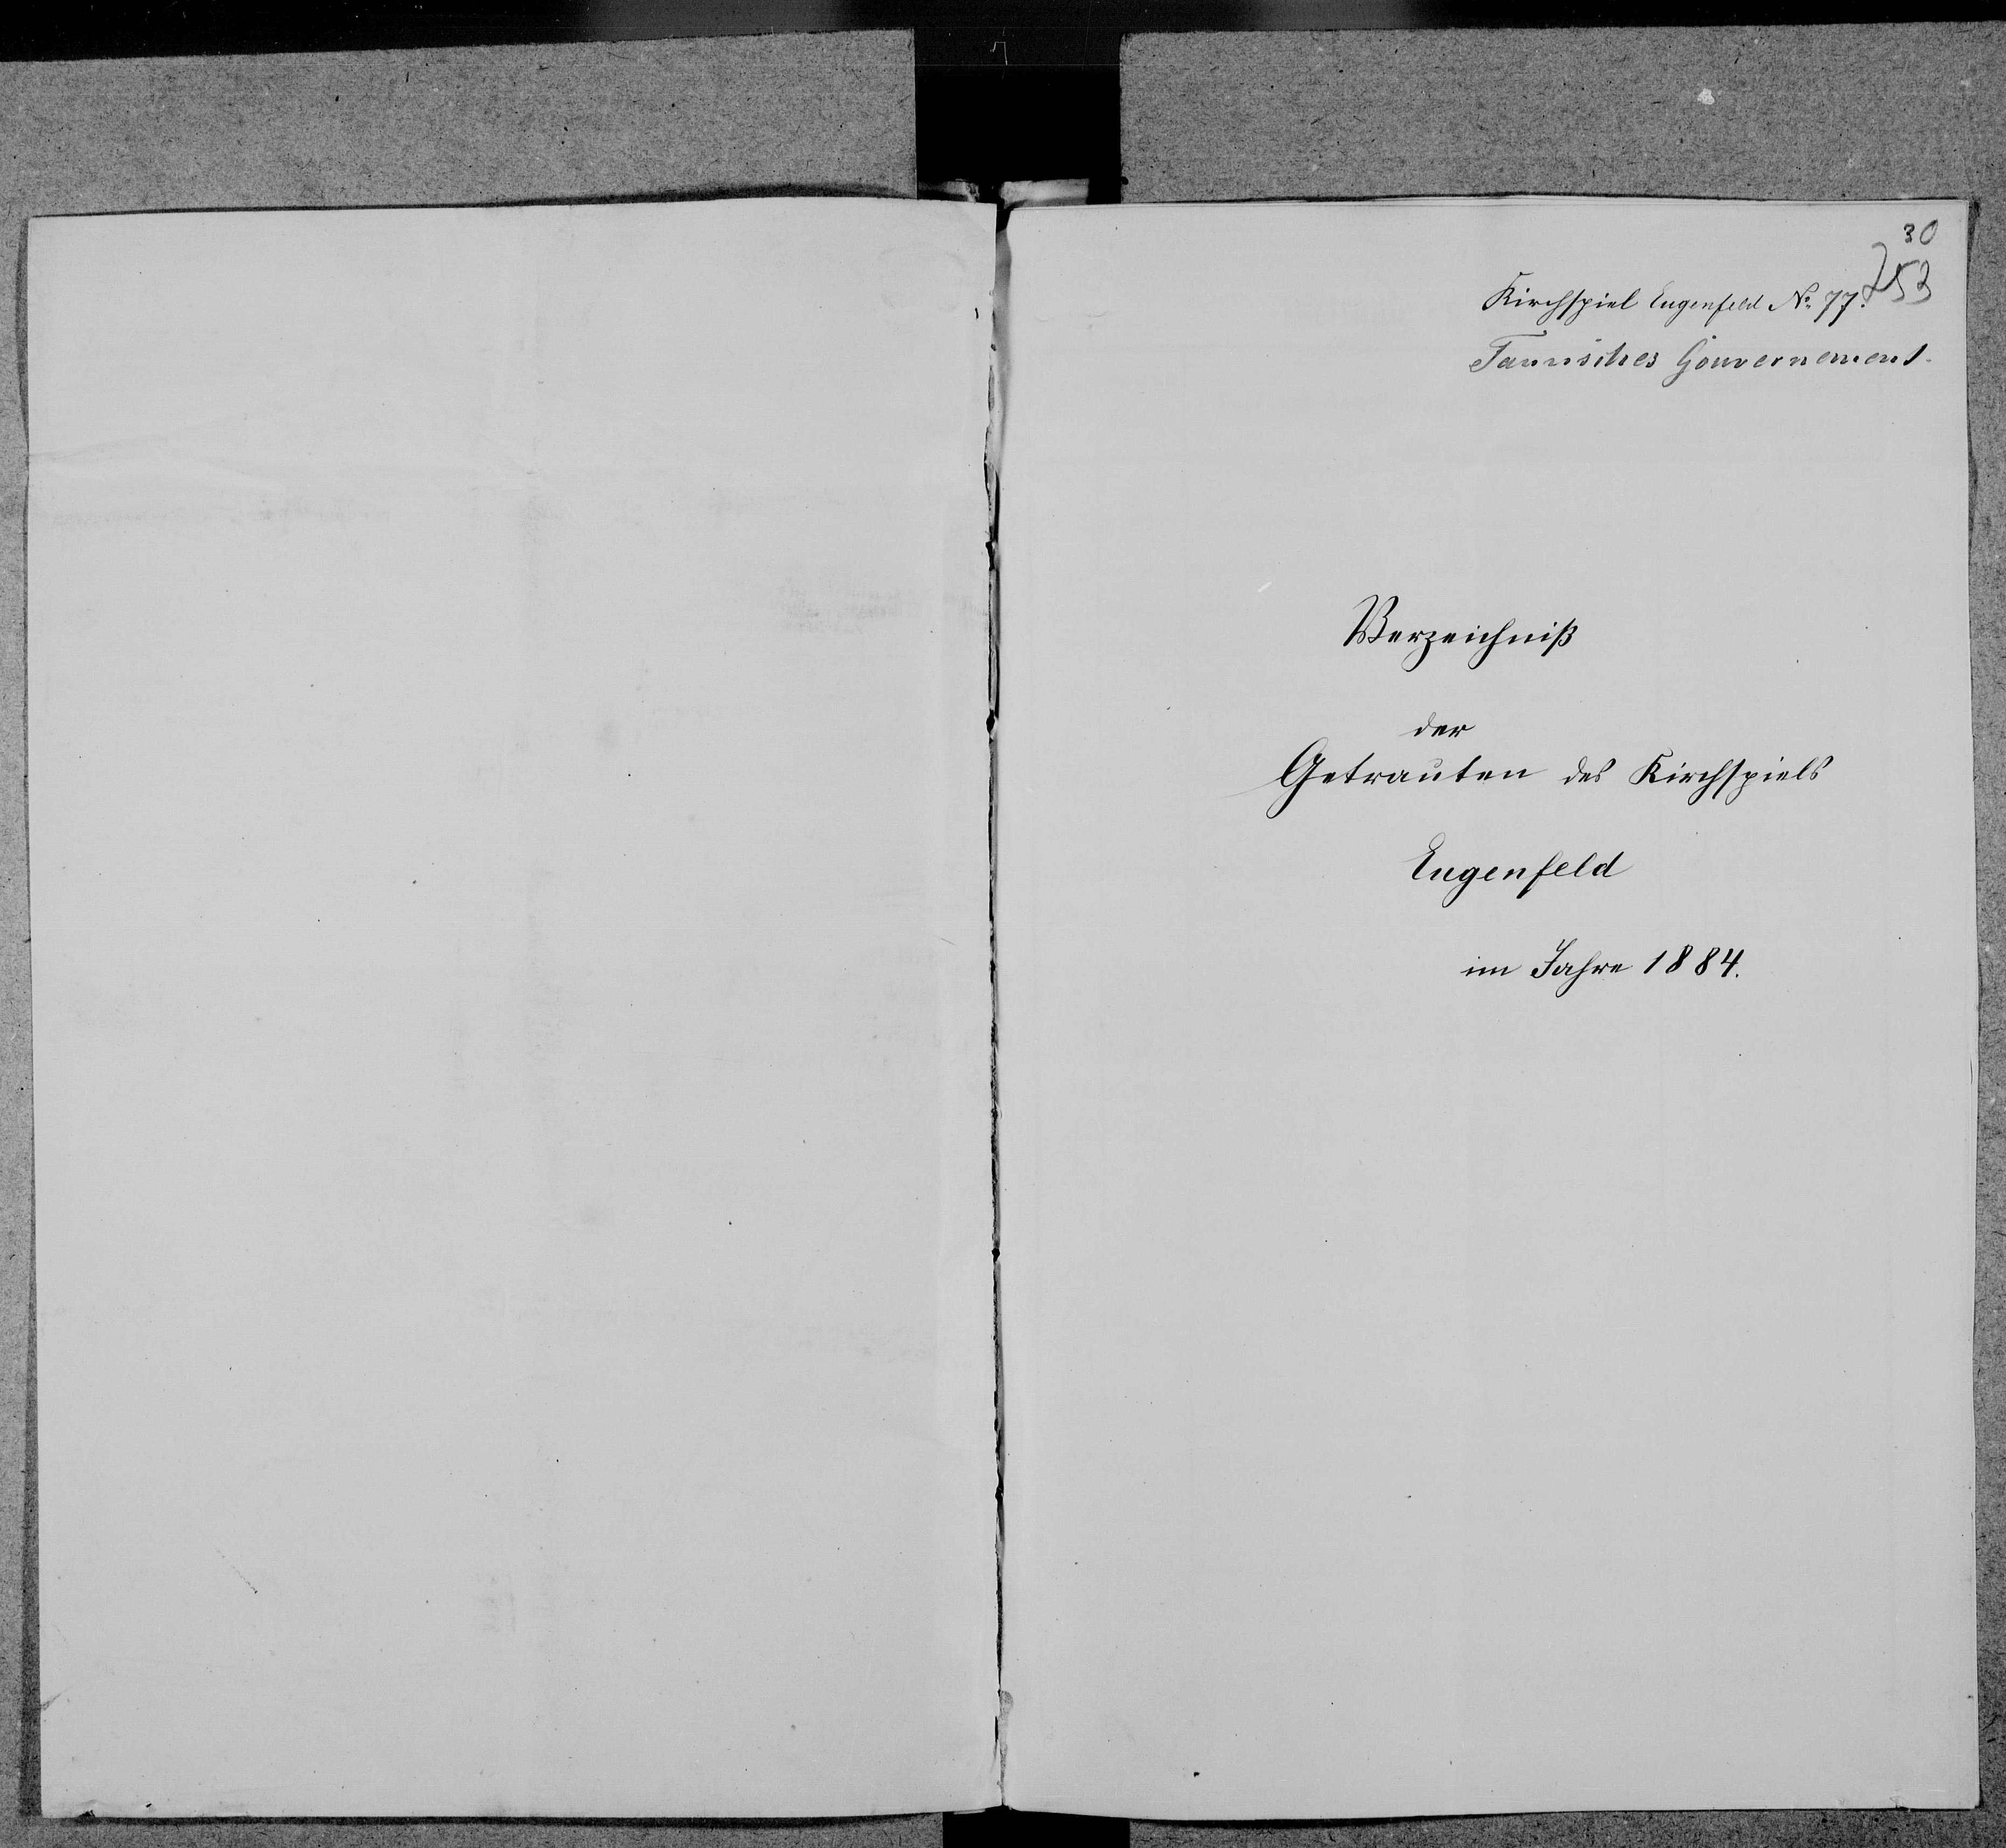 30
253
Kirchspiel Eugenfeld No. 77.
Taurisches Gouvernement.
Verzeichniß
der
Getrauten des Kirchspiels
Eugenfeld
im Jahre 1884.